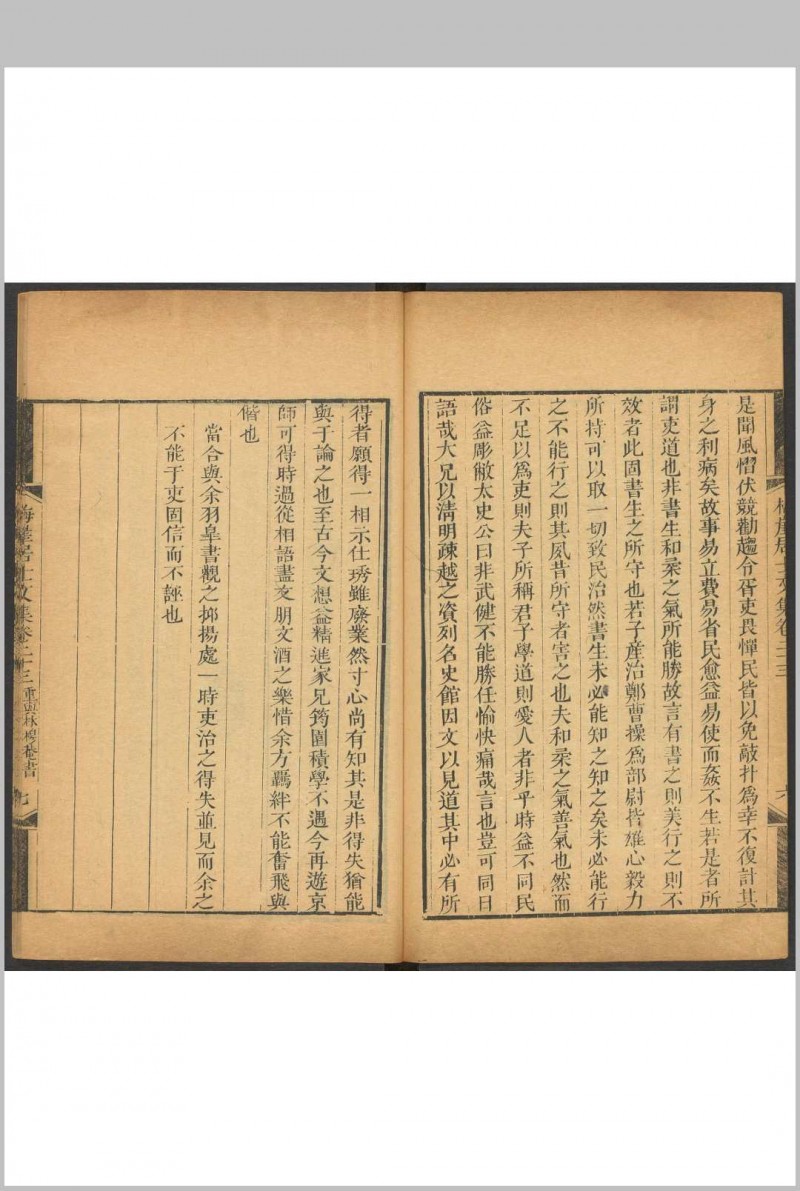 是聞風慴伏競勸趨令胥吏畏憚民皆以免敲扑爲幸不復計其
身之利病矣故事易立費易省民愈益易使而姦不生若是者所
謂吏道也非書生和柔之氣所能勝故言有書之則美行之則不
效者此固書生之所守也若子產治鄭曹操爲部尉皆雄心毅力
所持可以取一切致民治然書生未必能知之知之矣未必能行
之不能行之則其夙昔所守者害之也夫和柔之氣善氣也然而
不足以爲吏則夫子所稱君子學道則愛人者非乎時益不同民
俗益彫敝太史公曰非武健不能勝任愉快痛哉言也豈可同日
語哉大兄以淸明疎越之資列名史館因文以見道其中必有所
得者願得一相示仕琇雖廢業然寸心尚有知其是非得失猶能
與于論之也至古今文想益精進家兄筠園積學不遇今再遊京
師可得時過從相語盡文朋文酒之樂惜余方羈絆不能奮飛與
偕也
當合與余羽皐書觀之抑揚處一時吏治之得失並見而余之
不能于吏固信而不誣也
梅崖居士文集卷二十三